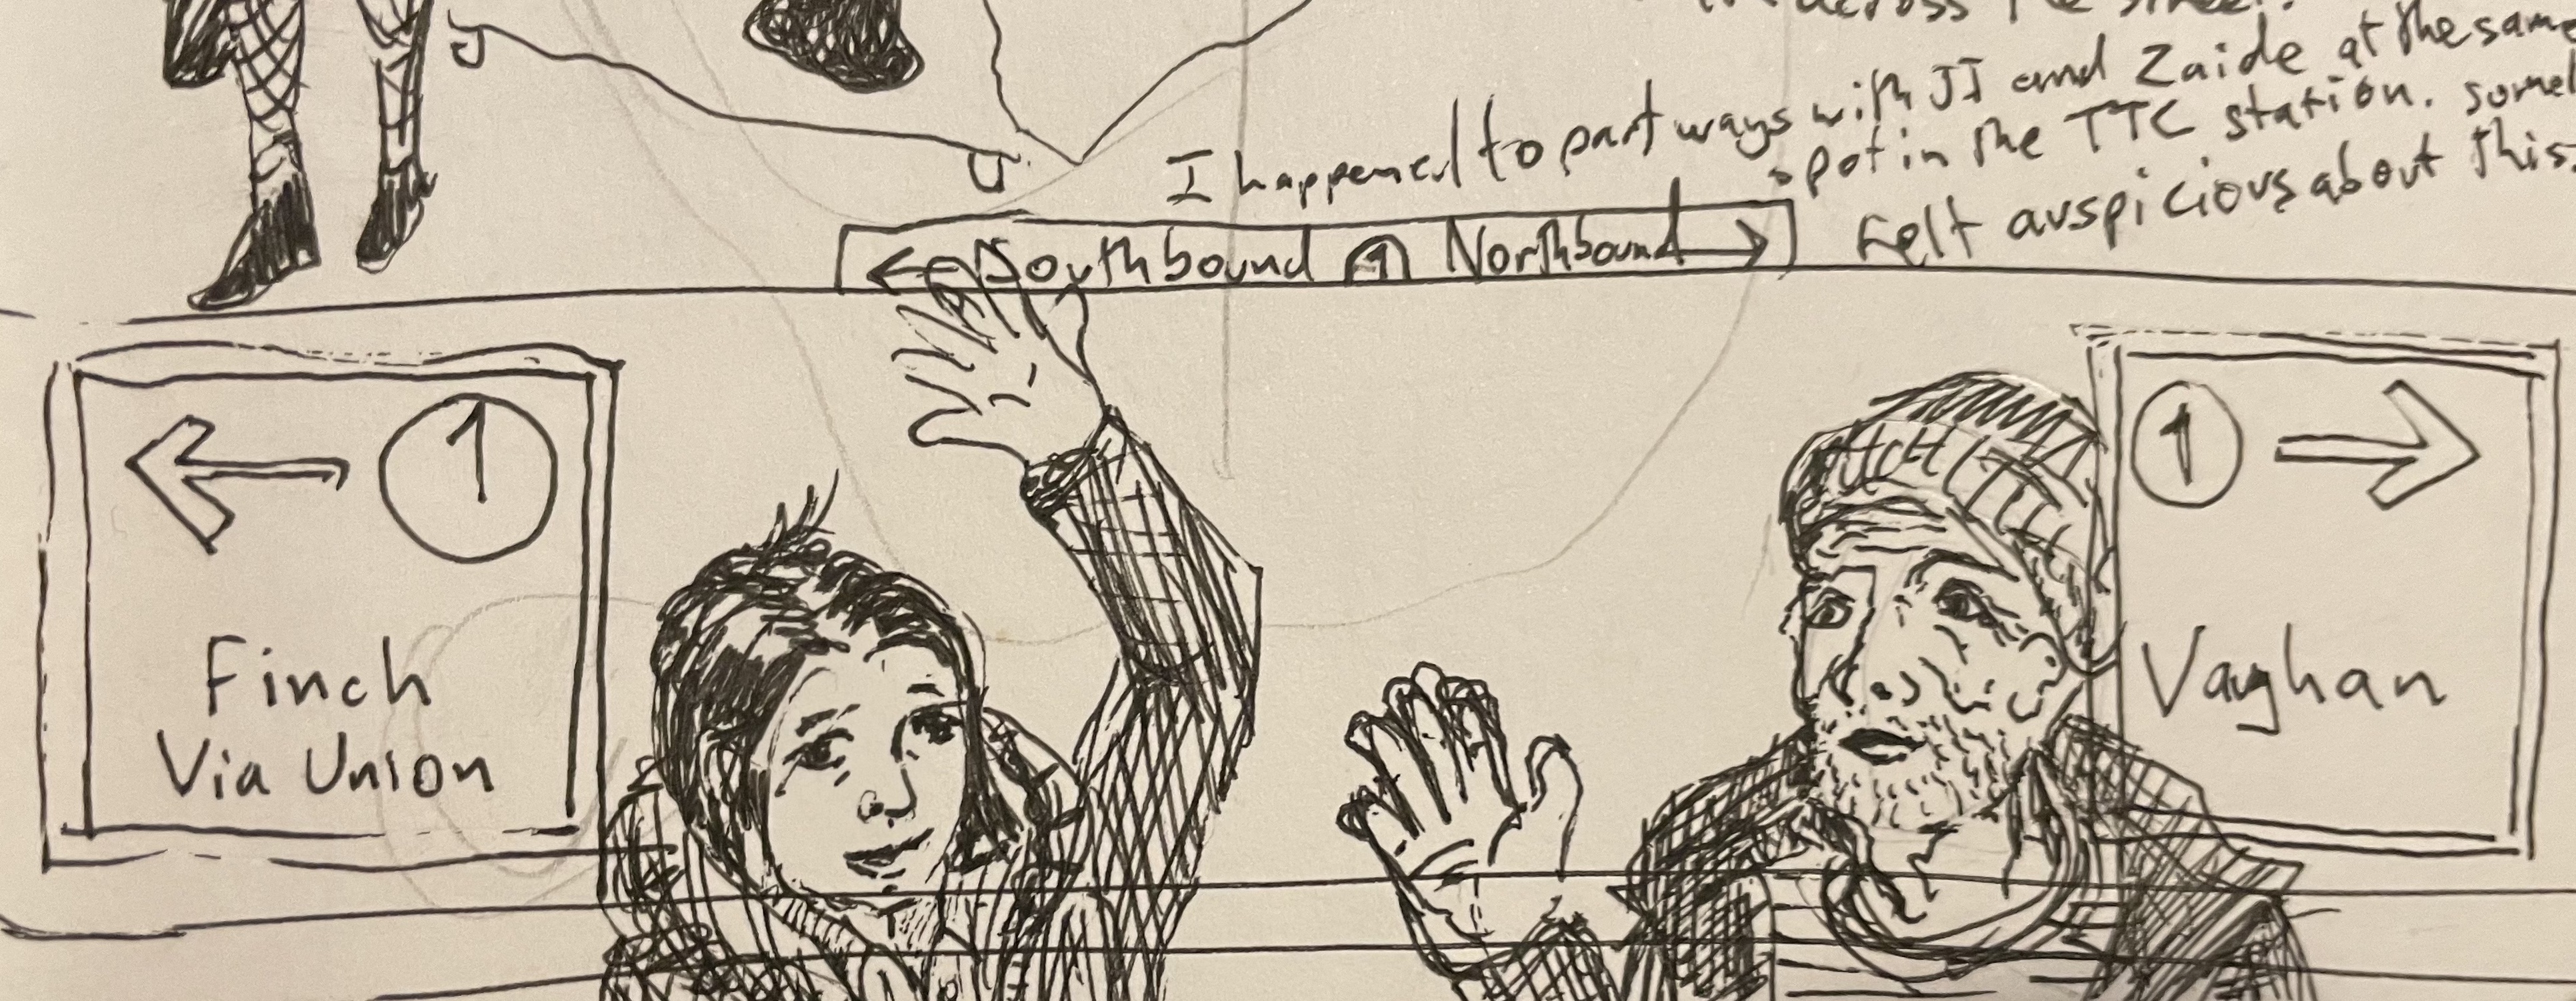 across the street.
I happened to part ways with JJ and Zaide at the same
spot in the TTC station.
felt auspicious about this.
← Southbound 1 Northbound →
← 1
Finch
Via Union
1 →
Vaughan